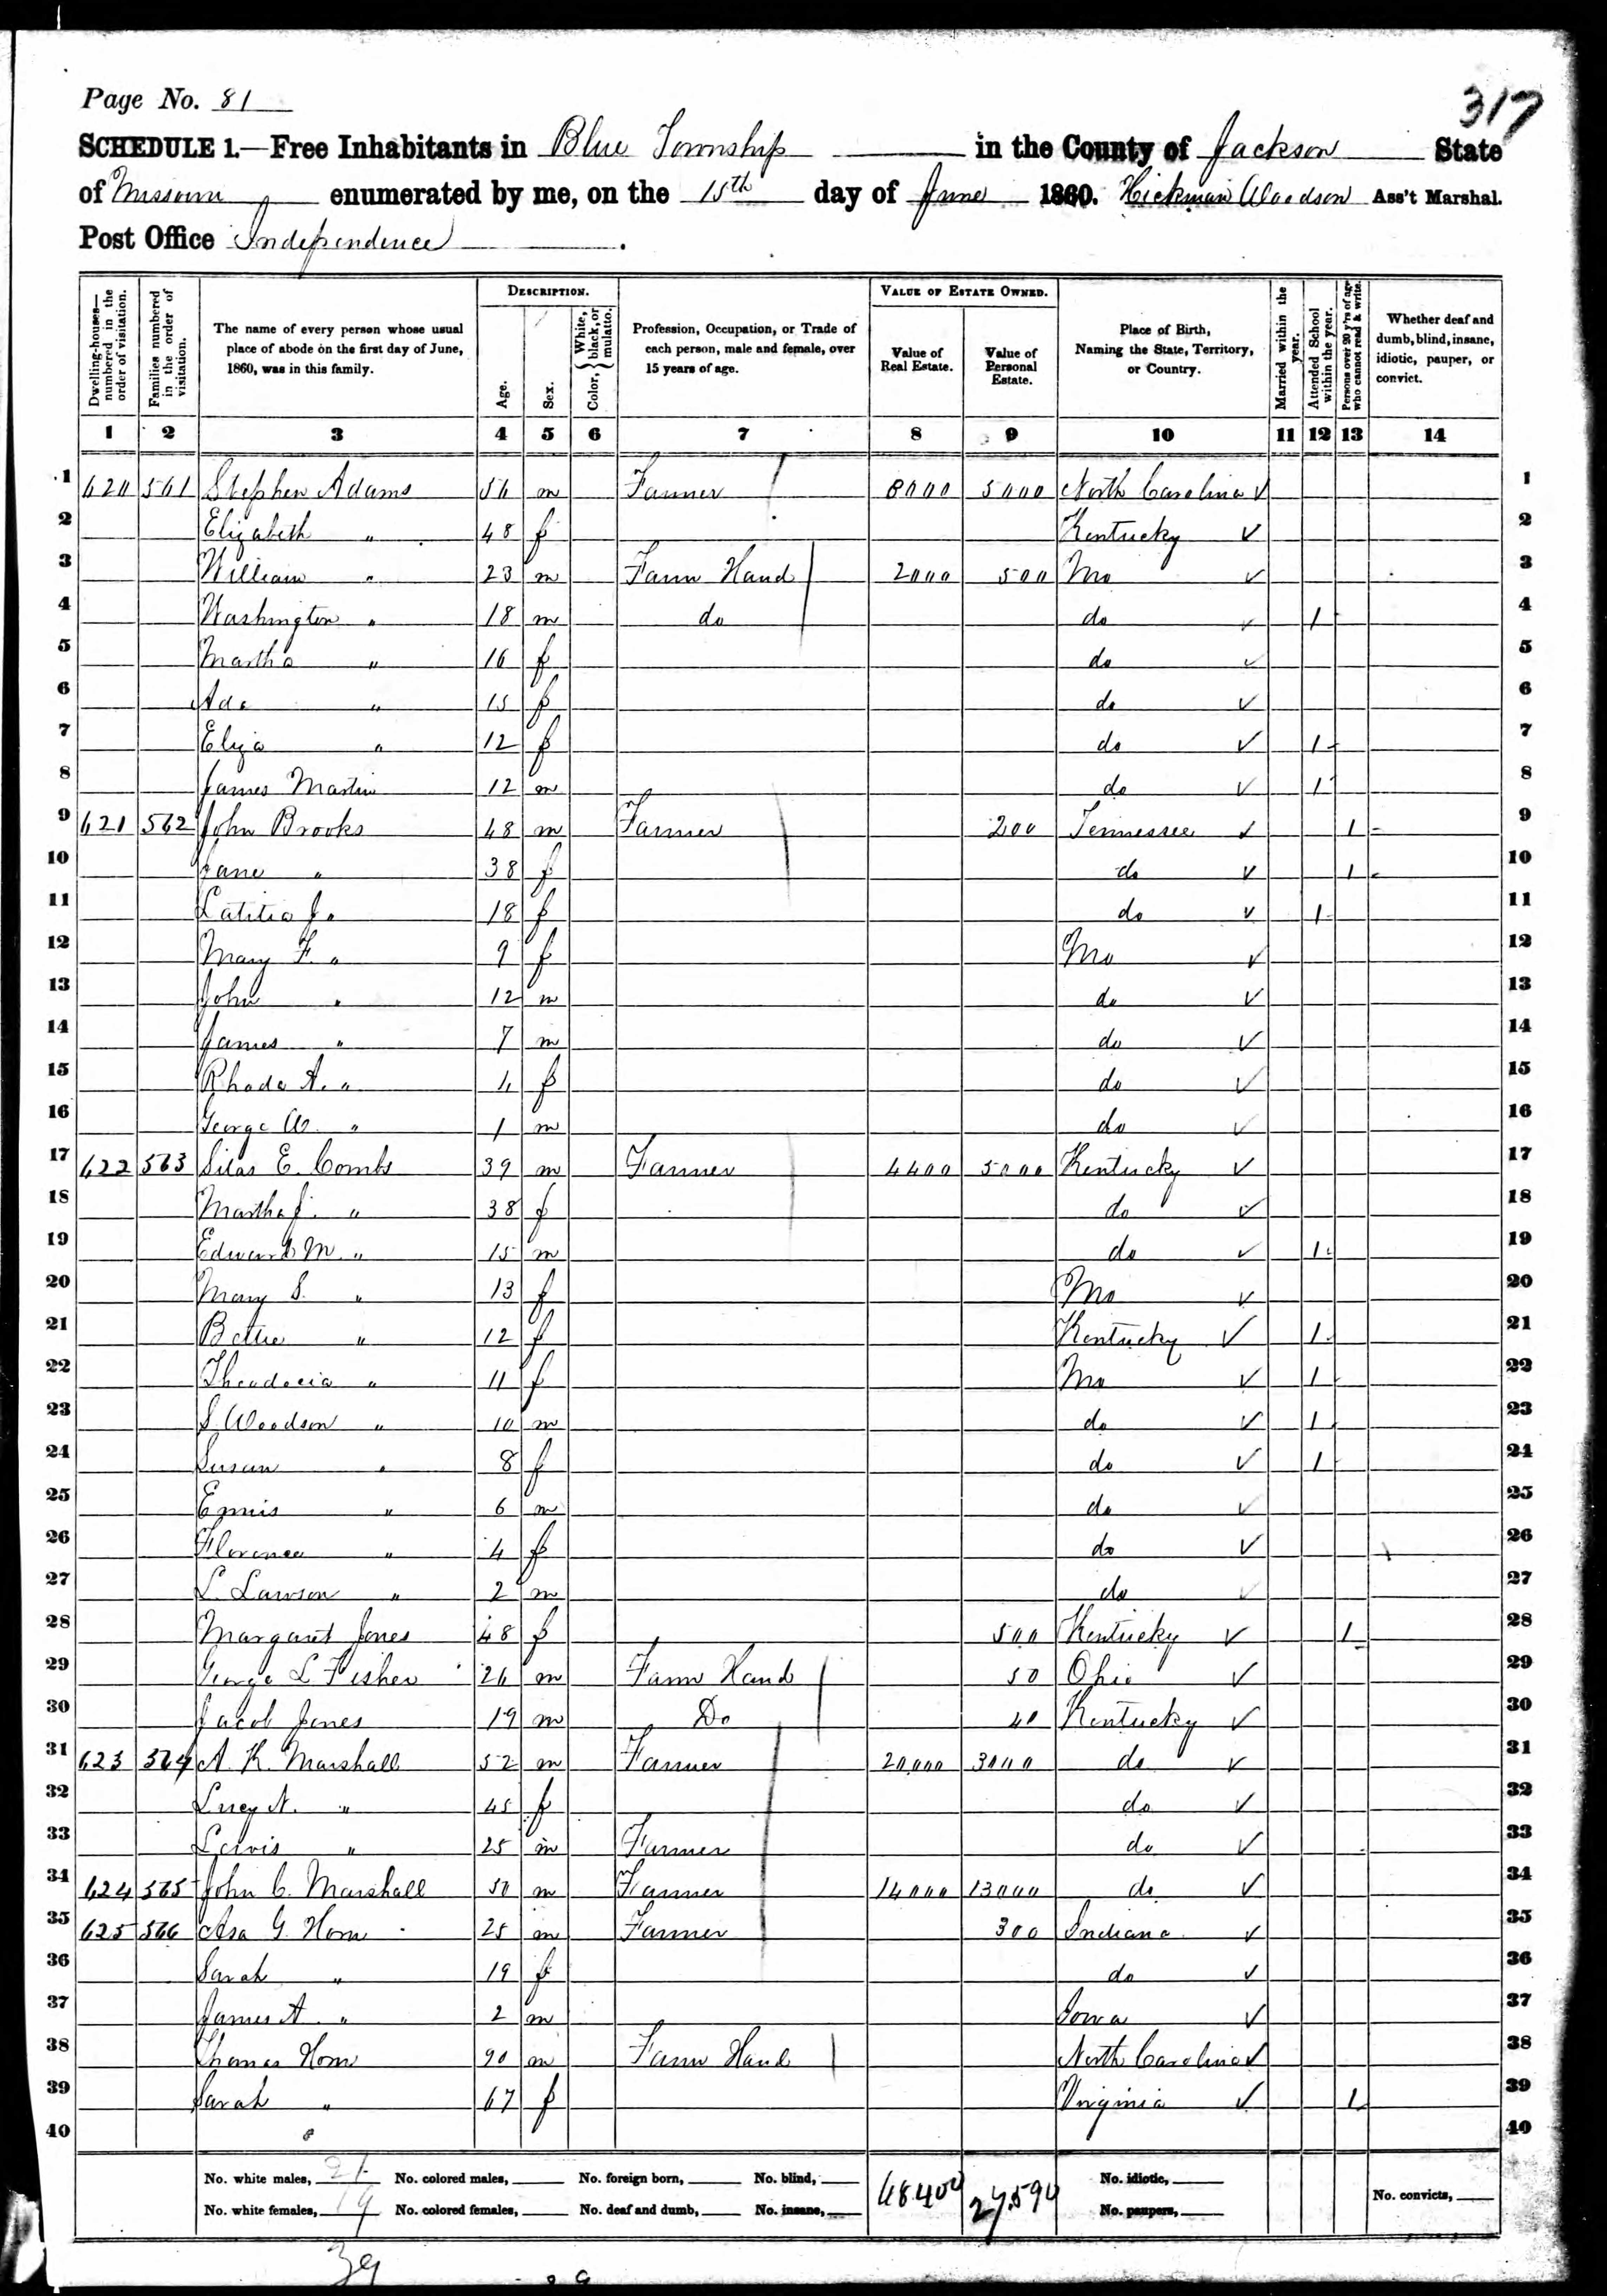 317
Page No. 81
SCHEDULE 1.—Free Inhabitants in Blue Township in the County of Jackson State
of Missouri enumerated by me, on the 15th day of June 1860. Hickman Woodson Ass't Marshal.
Post Office Independence.
Dwelling-houses—numbered in the order of visitation.
Families numbered in the order of visitation.
The name of every person whose usual place of abode on the first day of June, 1860, was in this family.
DESCRIPTION.
Age.
Sex.
Color, White, black, or mulatto.
Profession, Occupation, or Trade of each person, male and female, over 15 years of age.
VALUE OF ESTATE OWNED.
Value of Real Estate.
Value of Personal Estate.
Place of Birth, Naming the State, Territory, or Country.
Married within the year.
Attended School within the year.
Persons over 20 y'rs of age who cannot read & write.
Whether deaf and dumb, blind, insane, idiotic, pauper, or convict.
1 2 3 4 5 6 7 8 9 10 11 12 13 14
1 620 561 Stephen Adams 56 m Farmer 8000 5000 North Carolina ✓ 1
2 Elizabeth " 48 f Kentucky ✓ 2
3 William " 23 m Farm Hand 2000 500 Mo ✓ 3
4 Washington " 18 m do do ✓ 1 4
5 Martha " 16 f do ✓ 5
6 Ada " 15 f do ✓ 6
7 Eliza " 12 f do ✓ 1 7
8 James Martin 12 m do ✓ 1 8
9 621 562 John Brooks 48 m Farmer 200 Tennessee ✓ 1 9
10 Jane " 38 f do ✓ 1 10
11 Latitia J. " 18 f do ✓ 1 11
12 Mary F. " 9 f Mo ✓ 12
13 John " 12 m do ✓ 13
14 James " 7 m do ✓ 14
15 Rhoda A. " 4 f do ✓ 15
16 George W. " 1 m do ✓ 16
17 622 563 Silas E. Combs 39 m Farmer 4400 5000 Kentucky ✓ 17
18 Martha J. " 38 f do ✓ 18
19 Edward M. " 15 m do ✓ 1 19
20 Mary S. " 13 f Mo ✓ 20
21 Bettie " 12 f Kentucky ✓ 1 21
22 Theodocia " 11 f Mo ✓ 1 22
23 S. Woodson " 10 m do ✓ 1 23
24 Susan " 8 f do ✓ 1 24
25 Ennis " 6 m do ✓ 25
26 Florence " 4 f do ✓ 26
27 L. Lawson " 2 m do ✓ 27
28 Margaret Jones 48 f 500 Kentucky ✓ 1 28
29 George L Fisher 26 m Farm Hand 50 Ohio ✓ 29
30 Jacob Jones 19 m Do 40 Kentucky ✓ 30
31 623 564 A. K. Marshall 52 m Farmer 20,000 3000 do ✓ 31
32 Lucy N. " 45 f do ✓ 32
33 Lewis " 25 m Farmer do ✓ 33
34 624 565 John C. Marshall 50 m Farmer 14000 13000 do ✓ 34
35 625 566 Asa G. Horn 25 m Farmer 300 Indiana ✓ 35
36 Sarah " 19 f do ✓ 36
37 James A. " 2 m Iowa ✓ 37
38 Thomas Horn 90 m Farm Hand North Carolina ✓ 38
39 Sarah " 67 f Virginia ✓ 1 39
40 40
No. white males, 21 No. colored males, No. foreign born, No. blind, 48.400 27.590 No. idiotic,
No. white females, 19 No. colored females, No. deaf and dumb, No. insane, No. paupers, No. convicts,
39